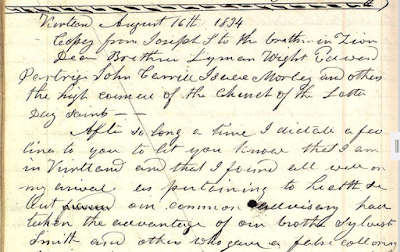 Kirtland August 16th 1834
Copy from Joseph S to the brethren in Zion
Dear Brethren Lyman Wight Edward
Partrige John Carrill Isaac Morley and others
the high council of the Church of the Latter
Day Saints —
After so long a time I dictate a few
lines to you to let you know that I am
in Kirtland and that I found all well on
my arival as pertaining to health &c
but our common advisary had
taken the advantage of our brother Sylvest
Smith and others who gave a false colloring